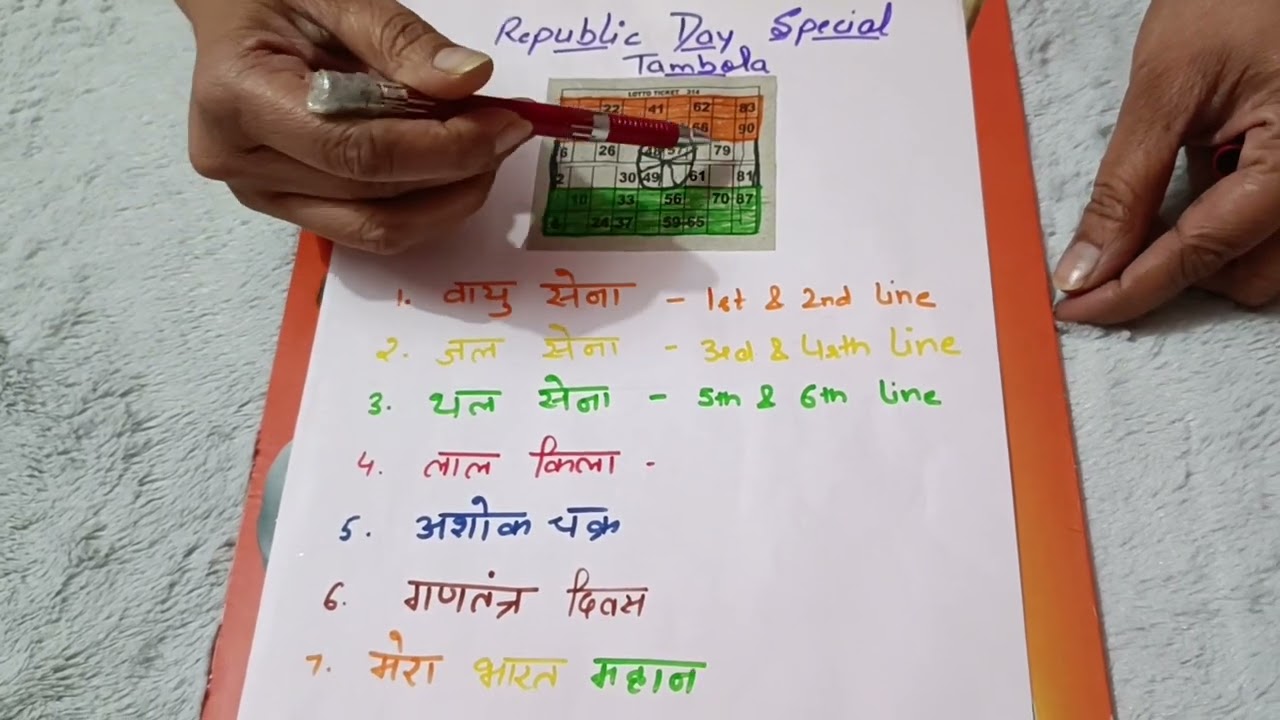 Republic Day Special
Tambola
LOTTO TICKET 314
22 41 62 83
90
6 26 48 57 79
2 30 49 61 81
10 33 56 70 87
24 37 59 65
1. वायु सेना - 1st & 2nd line
२. जल सेना - 3rd & 4rth line
3. थल सेना - 5th & 6th line
4. लाल किला -
5. अशोक चक्र
6. गणतंत्र दिवस
7. मेरा भारत महान